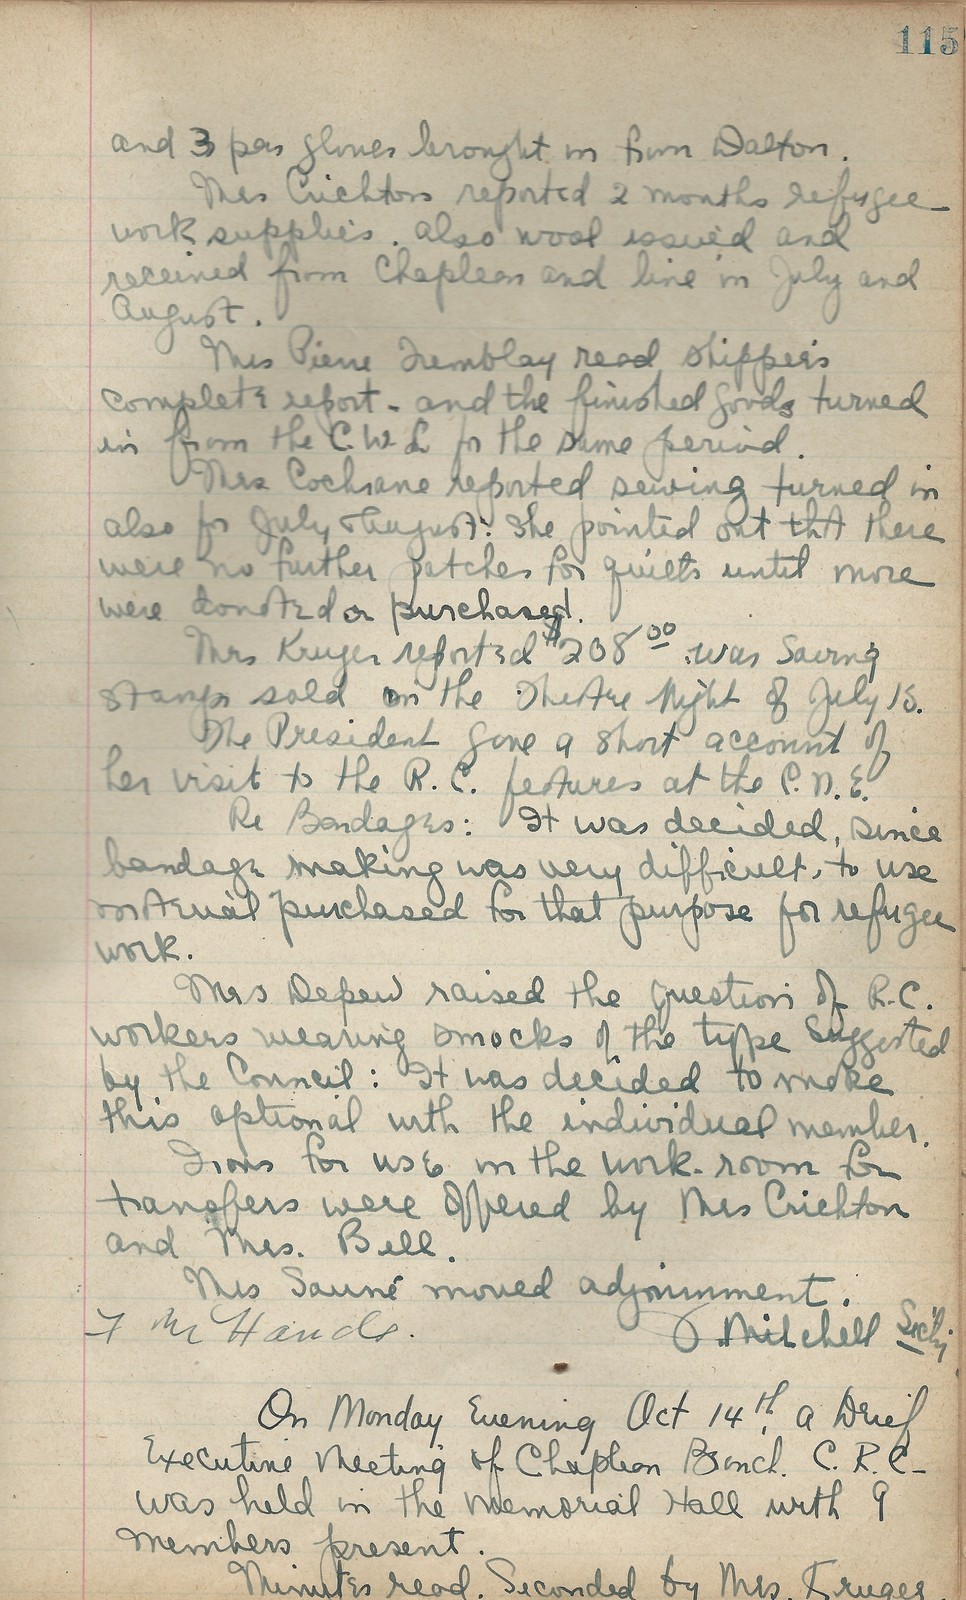 115
and 3 prs gloves brought in from Dalton.
Mrs Crichton reported 2 months refugee
work supplies. also wool issued and
received from Chapleau and line in July and
August.
Mrs Pierre Tremblay read shippers
complete report - and the finished goods turned
in from the C.W.L for the same period.
Mrs Cochrane reported sewing turned in
also for July & August: She pointed out that there
were no further patches for quilts until more
were donated or purchased.
Mrs Kruger reported $208 00 was Saving
Stamps sold on the Theatre Night of July 15.
The President gave a short account of
her visit to the R.C. features at the C.N.E.
Re Bandages: It was decided, since
bandage making was very difficult, to use
material purchased for that purpose for refugee
work.
Mrs Depew raised the question of R.C.
workers wearing smocks of the type suggested
by the Council: It was decided to make
this optional with the individual member.
Irons for use in the work-room for
transfers were offered by Mrs Crichton
and Mrs. Bell.
Mrs Sauvé moved adjournment.
Hands. Mitchell Sec'y
On Monday Evening Oct 14th, a Brief
Executive Meeting of Chapleau Branch. C.R.C-
was held in the Memorial Hall with 9
members present.
Minutes read. Seconded by Mrs. Kruger.